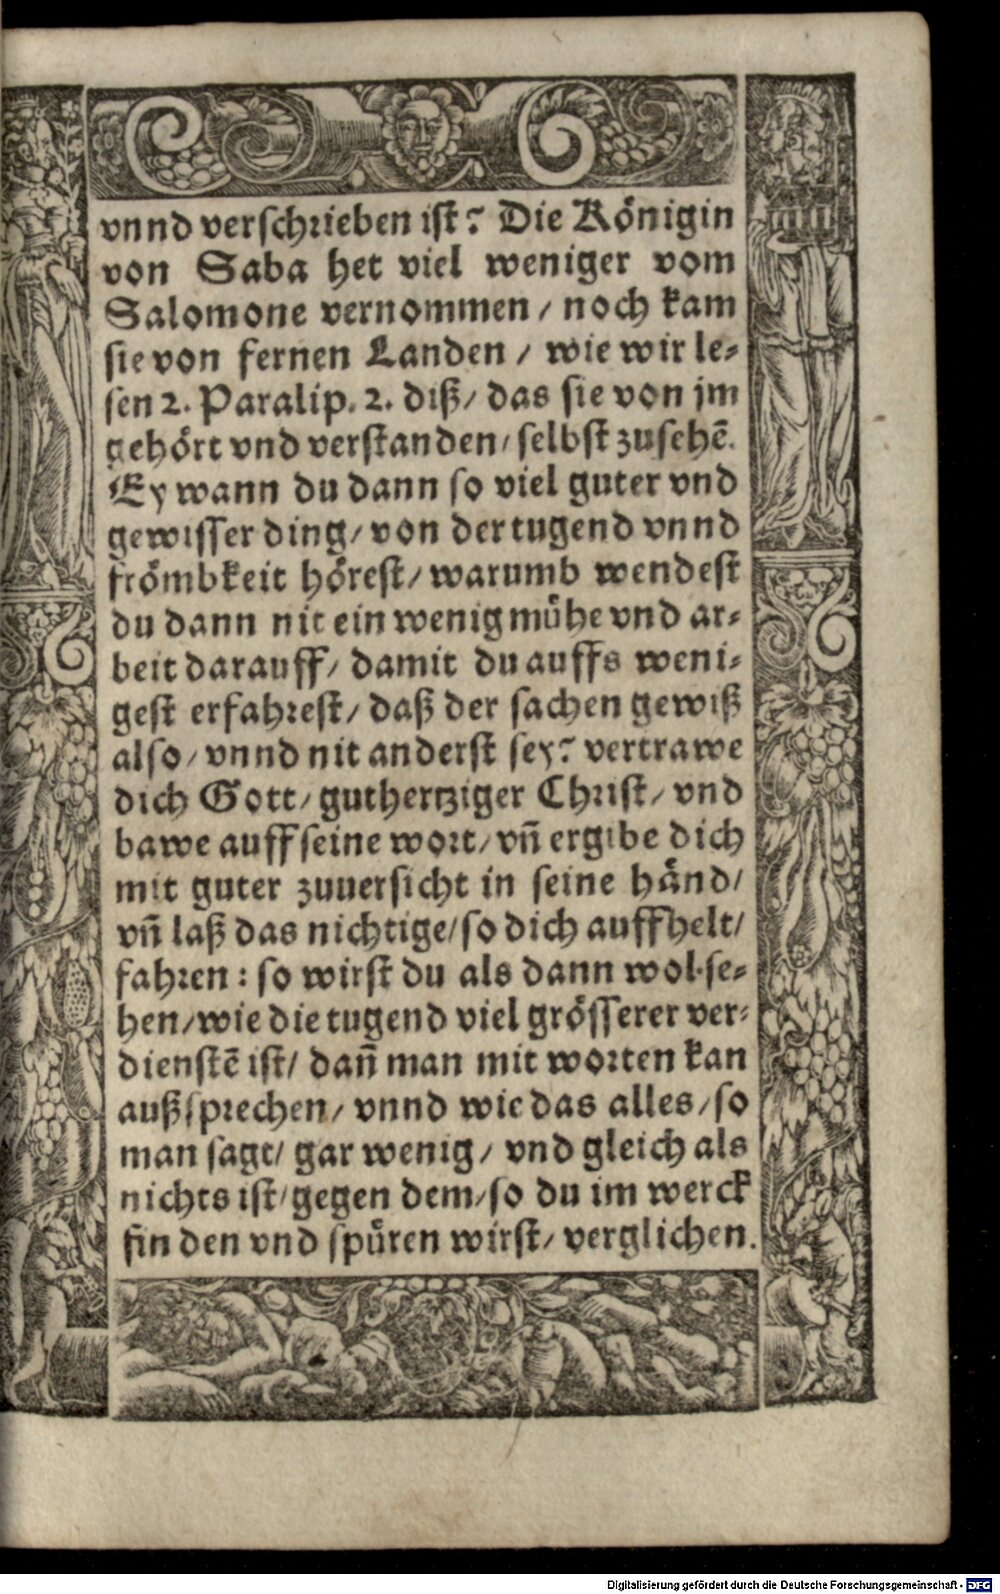 vnnd verschrieben ist? Die Königin
von Saba het viel weniger vom
Salomone vernommen / noch kam
sie von fernen Landen / wie wir le-
sen 2. Paralip. 2. diß / das sie von jm
gehört vnd verstanden / selbst zusehē.
Ey wann du dann so viel guter vnd
gewisser ding / von der tugend vnnd
frömbkeit hörest / warumb wendest
du dann nit ein wenig mühe vnd ar-
beit darauff / damit du auffs weni-
gest erfahrest / daß der sachen gewiß
also / vnnd nit anderst sey? vertrawe
dich Gott / guthertziger Christ / vnd
bawe auff seine wort / vñ ergibe dich
mit guter zuuersicht in seine händ /
vñ laß das nichtige / so dich auffhelt /
fahren : so wirst du als dann wol se-
hen / wie die tugend viel grösserer ver-
dienstē ist / dañ man mit worten kan
außsprechen / vnnd wie das alles / so
man sagt / gar wenig / vnd gleich als
nichts ist / gegen dem / so du im werck
finden vnd spüren wirst / verglichen.
Digitalisierung gefördert durch die Deutsche Forschungsgemeinschaft - DFG